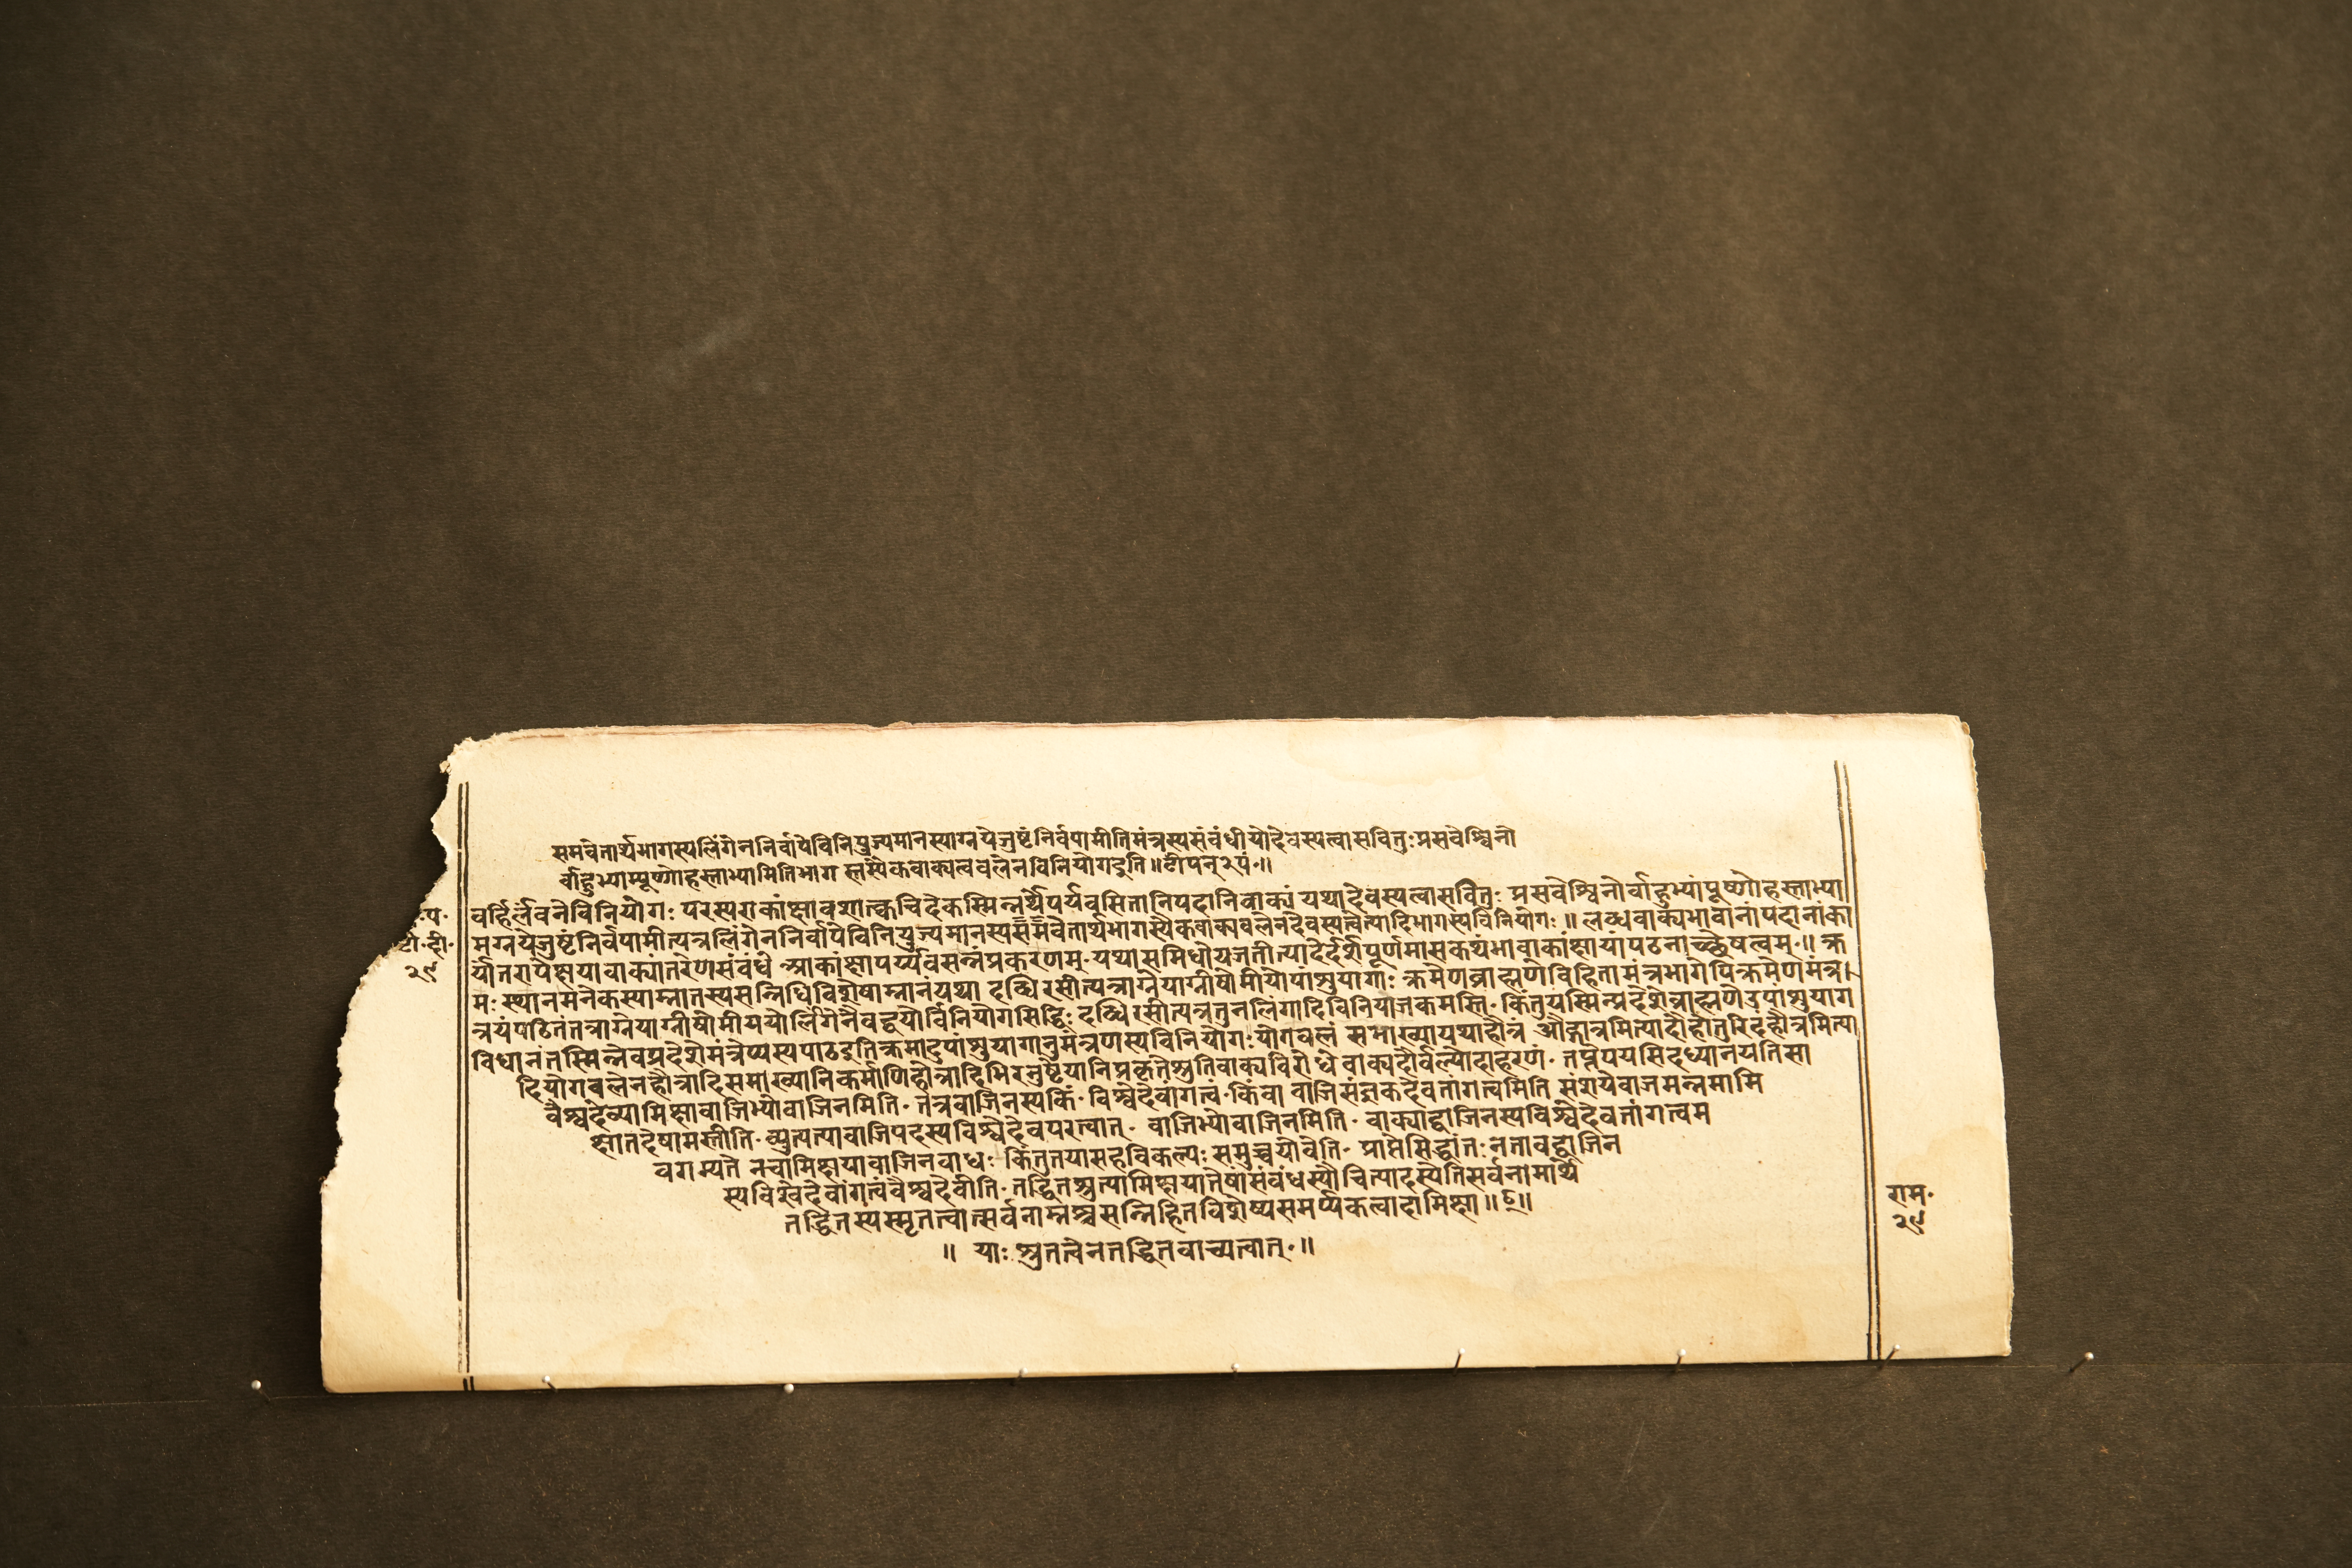 समवेतार्थभागस्यलिंगेननिर्वापेविनियुज्यमानस्याग्नयेजुष्टंनिर्वपामीतिमंत्रस्यसंबंधीयोदेवस्यत्वासवितुःप्रसवेश्विनो
र्बाहुभ्याम्पूष्णोहस्ताभ्यामितिभाग स्तस्यैकवाक्यत्वबलेनविनियोगइति॥
वर्हिर्लवनेविनियोगः परस्पराकांक्षावशात्क्वचिदेकस्मिन्नर्थेपर्यवसितानिपदानिवाक्यं यथादेवस्यत्वासवितुः प्रसवेश्विनोर्वाहुभ्यांपूष्णोहस्ताभ्या
मग्नयेजुष्टंनिर्वपामीत्यत्रलिंगेननिर्वापेविनियुज्यमानस्यसमवेतार्थभागस्यैकवाक्यबलेनदेवस्यत्वेत्यादिभागस्यविनियोगः॥ लब्धवाक्यभावानांपदानांका
र्यांतरापेक्षयावाक्यांतरेणसंबंधे आकांक्षापर्य्यवसन्नंप्रकरणम्·यथासमिधोयजतीत्यादेर्दर्शपूर्णमासकथंभावाकांक्षायांपठनाच्छेषत्वम्॥ क्र
मःस्थानमनेकस्याम्नातस्यसन्निधिविशेषाम्नानंयथा दब्धिरसीत्यत्राग्नेयाग्नीषोमीयोपांशुयागाः क्रमेणब्राह्मणेविहितामंत्रभागेपिक्रमेणमंत्र
त्रयंपठितंतत्राग्नेयाग्नीषोमीययोर्लिंगेनैवद्वयोर्विनियोगसिद्धिः दब्धिरसीत्यत्रतुनलिंगादिविनियोजकमस्ति· किंतुयस्मिन्प्रदेशेब्राह्मणेउपांशुयाग
विधानंतस्मिन्नेवप्रदेशेमंत्रेप्यस्यपाठइतिक्रमादुपांशुयागानुमंत्रणस्यविनियोगः योगबलं समाख्यायथाहौत्रं औद्गात्रमित्यादौहोतुरिदंहौत्रमित्या
दियोगबलेनहौत्रादिसमाख्यानिकर्माणिहोत्रादिभिरनुष्ठेयानिप्रकृतेश्रुतिवाक्यविरोधे वाक्यदौर्बल्योदाहरणं· तप्तेपयसिदध्यानयतिसा
वैश्वदेव्यामिक्षावाजिभ्योवाजिनमिति· तत्रवाजिनस्यकिं· विश्वेदेवांगत्वं·किंवा वाजिसंज्ञकदेवतांगत्वमिति संशयेवाजमन्नमामि
क्षातदेषामस्तीति·व्युत्पत्यावाजिपदस्यविश्वेदेवपरत्वात्· वाजिभ्योवाजिनमिति· वाक्याद्वाजिनस्यविश्वेदेवतांगत्वम
वगम्यते नचामिक्षयावाजिनबाधः किंतुतयासहविकल्पः समुच्चयोवेति· प्राप्तेसिद्धांतःनतावद्वाजिन
स्यविश्वेदेवांगत्वंवैश्वदेवीति·तद्धितश्रुत्यामिक्षयातेषांसंबंधस्यौचित्यादस्येतिसर्वनामार्थे
तद्धितस्यस्मृतत्वात्सर्वनाम्नश्चसन्निहितविशेष्यसमर्प्पकत्वादामिक्षा॥
॥ याः श्रुतत्वेनतद्धितवाच्यत्वात्·॥
२९
राम·
२९